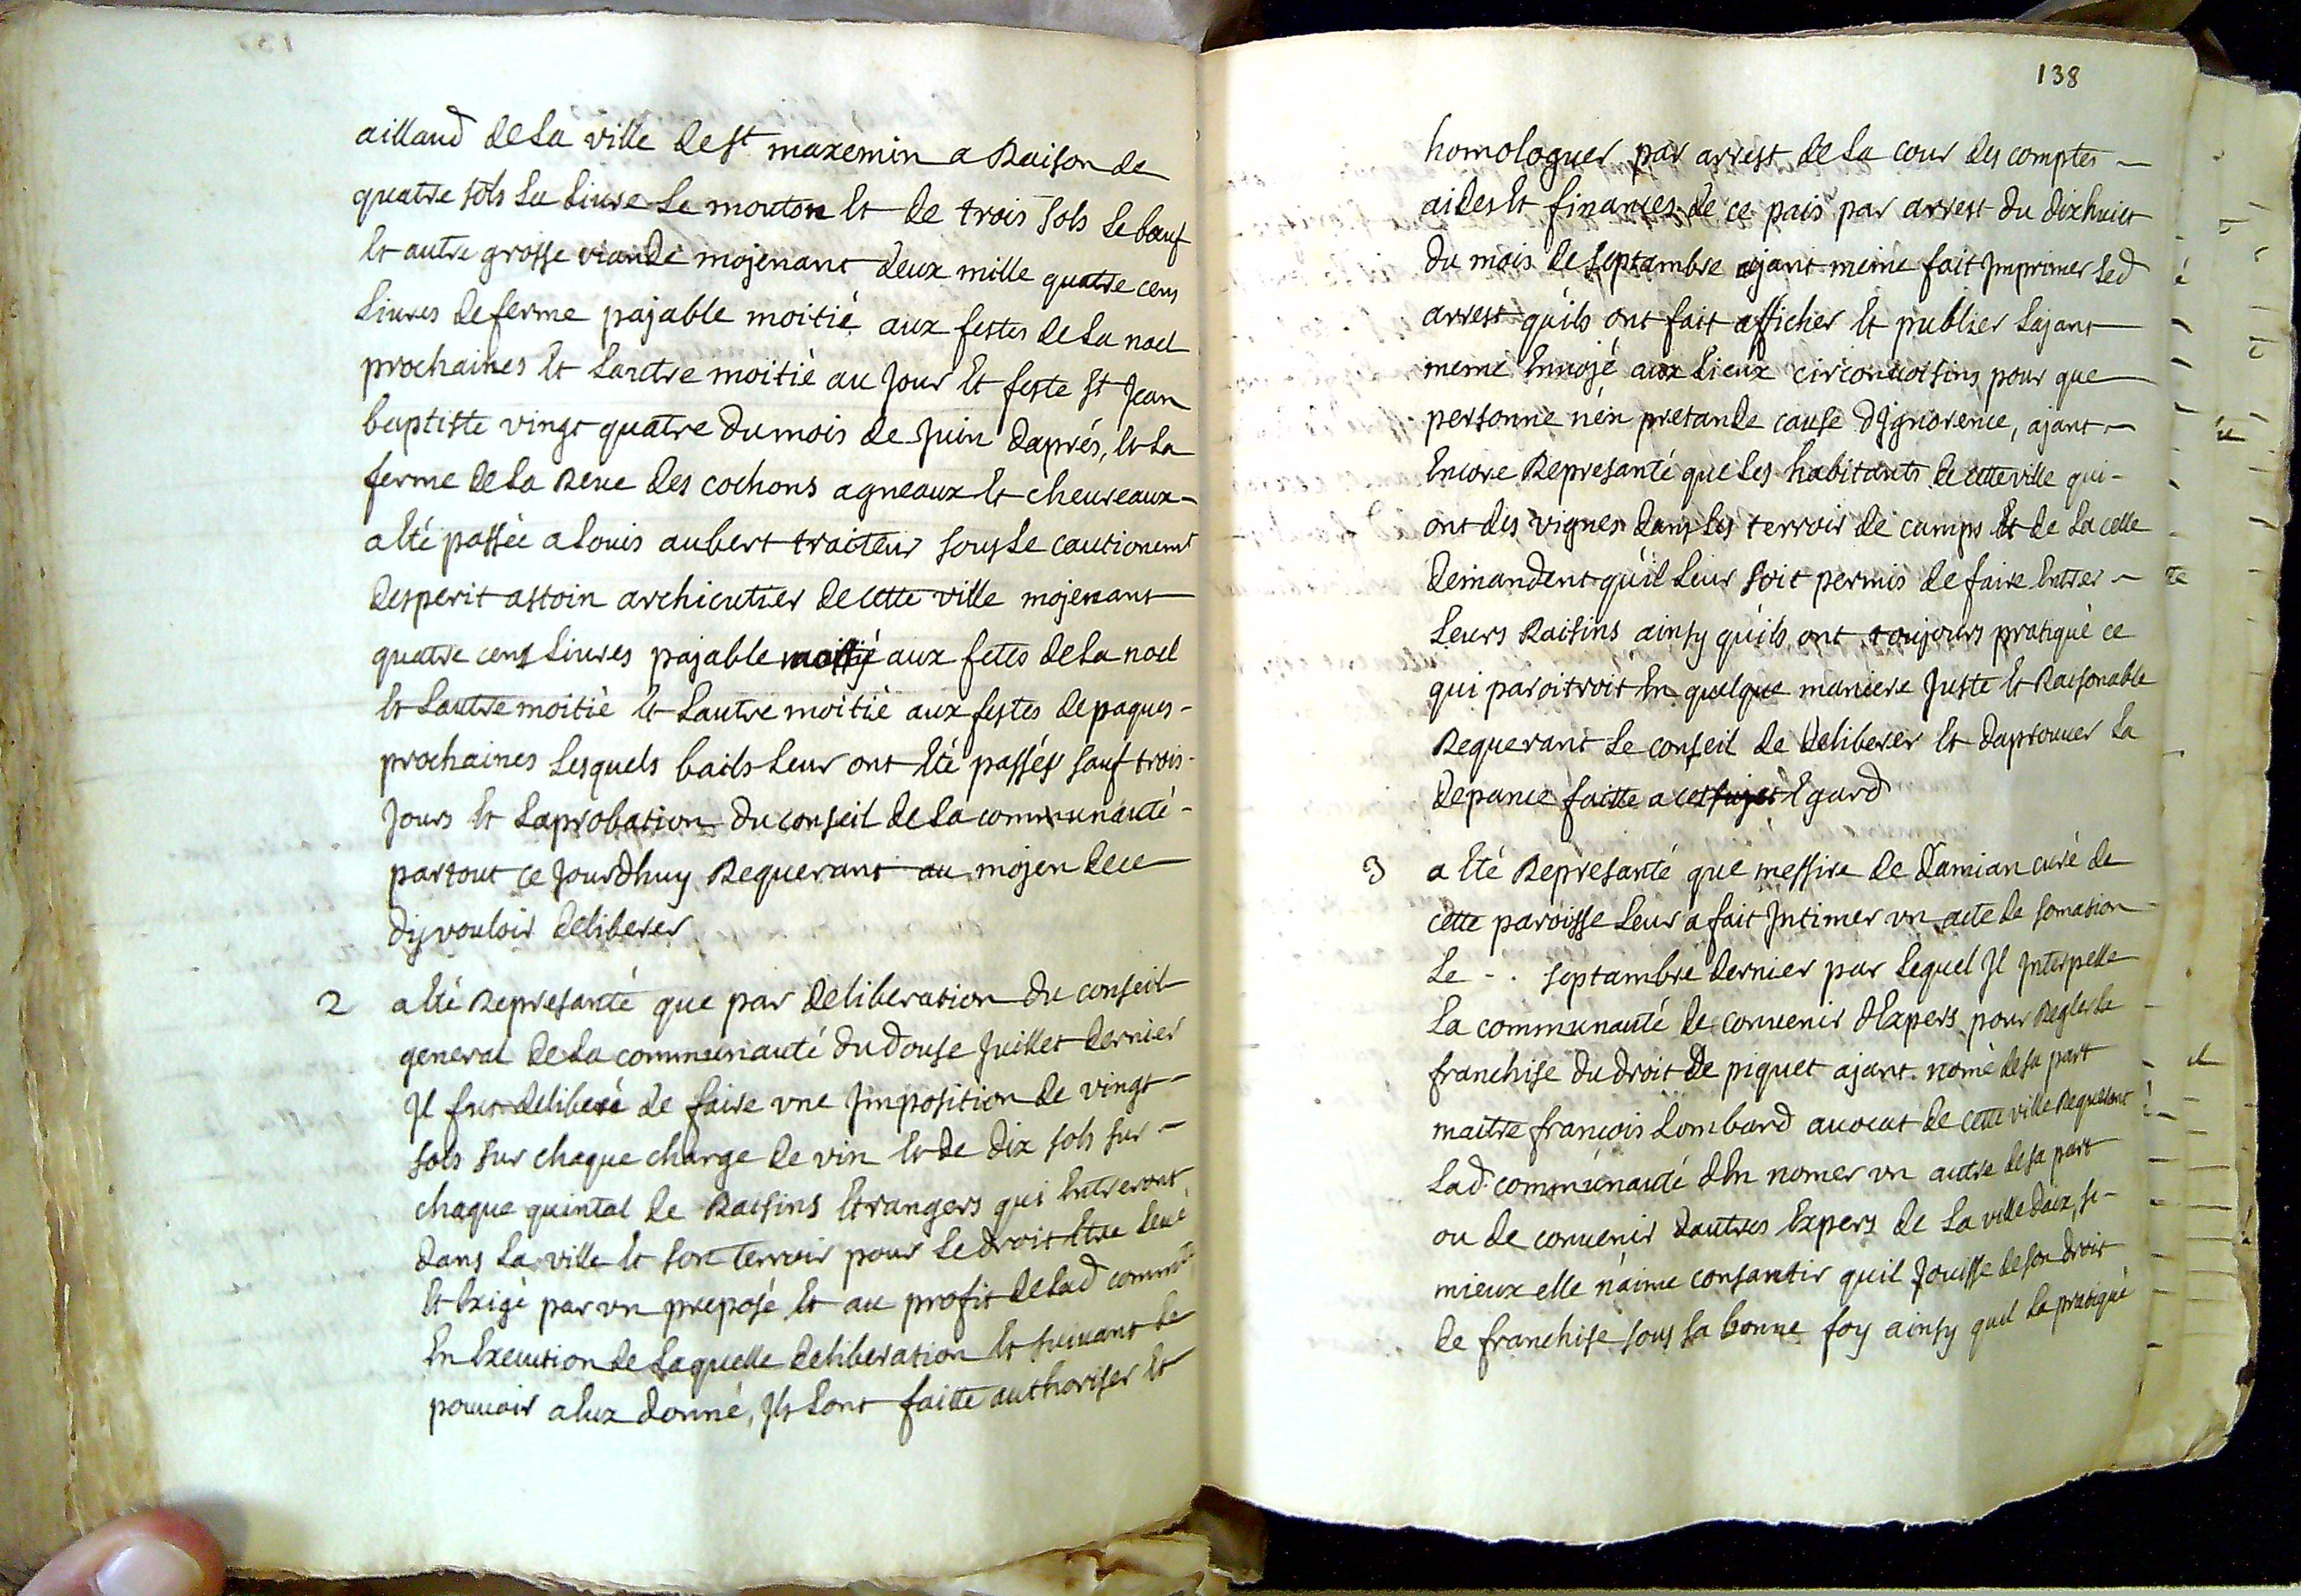 aillaud de la ville de st maxemin a Raison de
quatre sols la livre le mouton et de trois sols le bœuf
et autre grosse viande mojenant deux mille quatre cens
livres de ferme pajable moitié aux festes de la noel
prochaines et lautre moitié au jour et feste st jean
baptiste vingt quatre du mois de juin daprés, et la
ferme de la Reve des cochons agneaux et chevreaux -
a été passée a louis aubert traiteur sous le cautionemt
desperit astoin archicutier de cette ville mojenant
quatre cens livres pajable moitié aux fetes de la noel
et lautre moitié et lautre moitié aux festes de paques -
prochaines lesquels bails leur ont été passés sauf trois -
jours et laprobation du conseil de la communauté -
partout ce jourdhuy Requerant au mojen de ce
dy vouloir deliberer
2 a été Represanté que par deliberation du conseil
general de la communauté du douse juillet dernier
il fut deliberé de faire une imposition de vingt -
sols sur chaque charge de vin et de dix sols sur -
chaque quintal de Raisins etrangers qui entreront
dans la ville et son terroir pour le droit etre levé
et exigé par un preposé et au profit de lad commté
en execution de laquelle deliberation et suivant le
pouvoir a eux donné, ils lont faitte authoriser et
138
homologuer par arrest de la cour des comptes -
aides et finances de ce pais par arrest du dixhuict
du mois de septambre ajant meme fait imprimer led
arrest quils ont fait afficher et publier lajant
meme envojé aux lieux circonvoisins pour que
personne nén pretande cause dignorence, ajant -
encore Represanté que les habitants de cette ville qui -
ont des vignes dans les terroir de camps et de la celle
demandent qu'il leur soit permis de faire entrer -
leurs Raisins ainsy quils ont toujours pratiqué ce
qui paroitroit en quelque maniere juste et Raisonable
Requerant le conseil de deliberer et daprouver la
depance faitte a cet sujet egard
3 a été Represanté que messire de Damian curé de
cette paroisse leur a fait intimer un acte de somation
le - . septambre dernier par lequel il interpelle
la communauté de convenir dexpers pour Regler la
franchise du droit de piquet ajant nomé de sa part
maitre françois Lombard avocat de cette ville Requerant
lad. communauté den nomer un autre de sa part
ou de convenir dautres expers de la ville daix, si -
mieux elle n'aime consantir quil jouisse de son droit
de franchise sous sa bonne foy ainsy quil la pratiqué